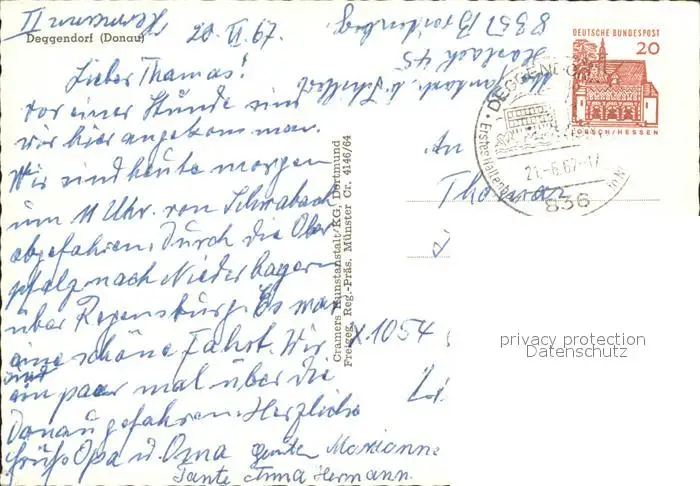 Deggendorf (Donau)
20. VI 67.
Lieber Thomas!
vor einer Stunde sind
wir hier angekommen.
Wir sind heute morgen
um 11 Uhr von Schwabach
abgefahren. Durch die Ober
pfalz nach Niederbayern
über Regensburg. Es war
eine schöne Fahrt. Wir
sind
ein paar mal über die
Donau gefahren. Herzliche
Grüße Opa u. Oma
Marianne
Tante Anna Hermann.
Hermann II
8351
Haslach 45
Cramers Kunstanstalt/KG, Dortmund
Freigeg. Reg.-Präs. Münster Cr. 4146/64
DEUTSCHE BUNDESPOST
20
LORSCH/HESSEN
DEGGENDORF
21.-6.67-17
836
An
Thomas
1054
privacy protection
Datenschutz